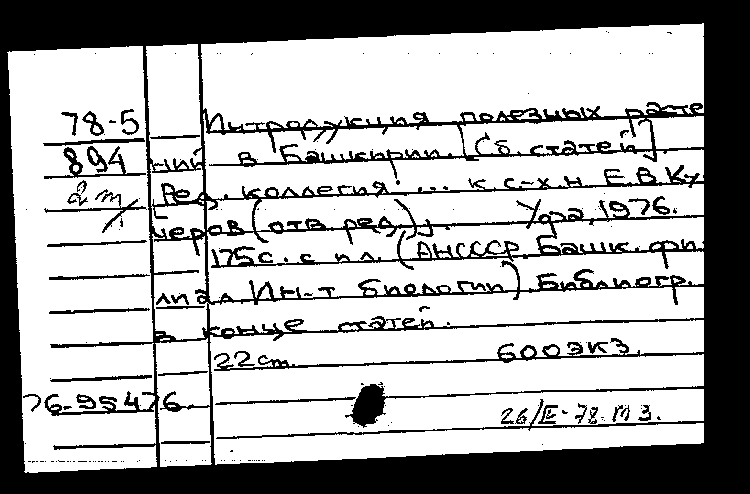 78-5 Интродукция полезных расте
894 ний в Башкирии. [Сб. статей].
2 m/ Ред. коллегия: ... к. с-х. н. Е.В. Ку-
черов (отв. ред.). Уфа, 1976.
175 с. с ил. (АНСССР. Башк. фи-
лиал. Ин-т биологии) Библиогр.
в конце статей.
22 cm. 600 экз.
76-95476.
26/IV-78. m 3.